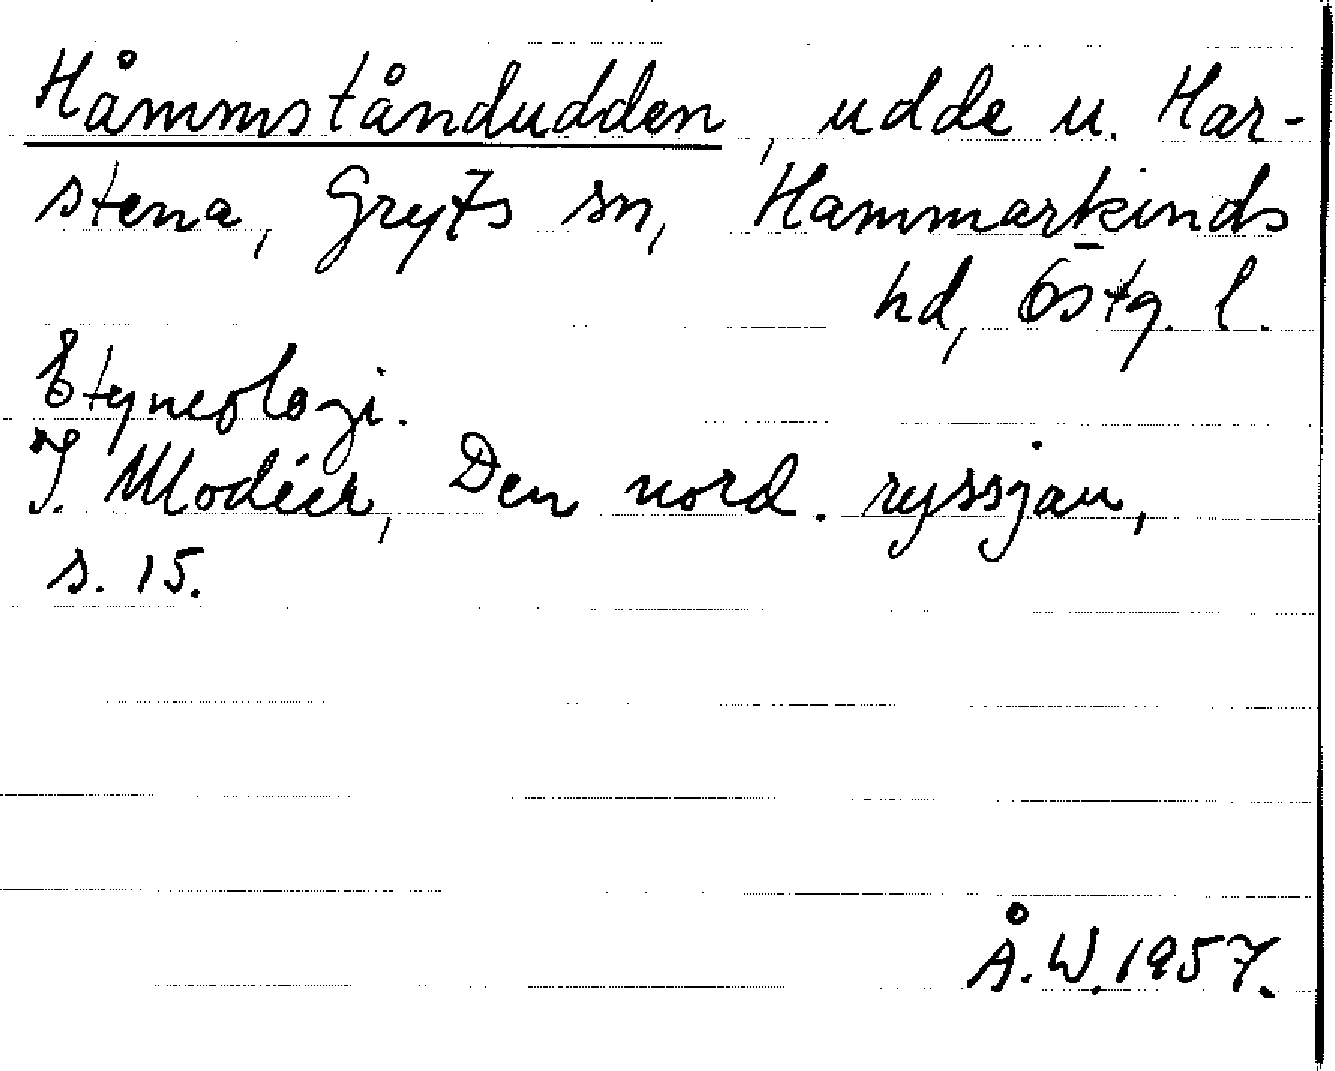 Håmmståndudden, udde u. Har-
stena, Gryts sn, Hammarkinds
hd, Östg. l.
Etymologi.
I. Modéer, Den nord. ryssjan,
s. 15.
Å. W. 1957.